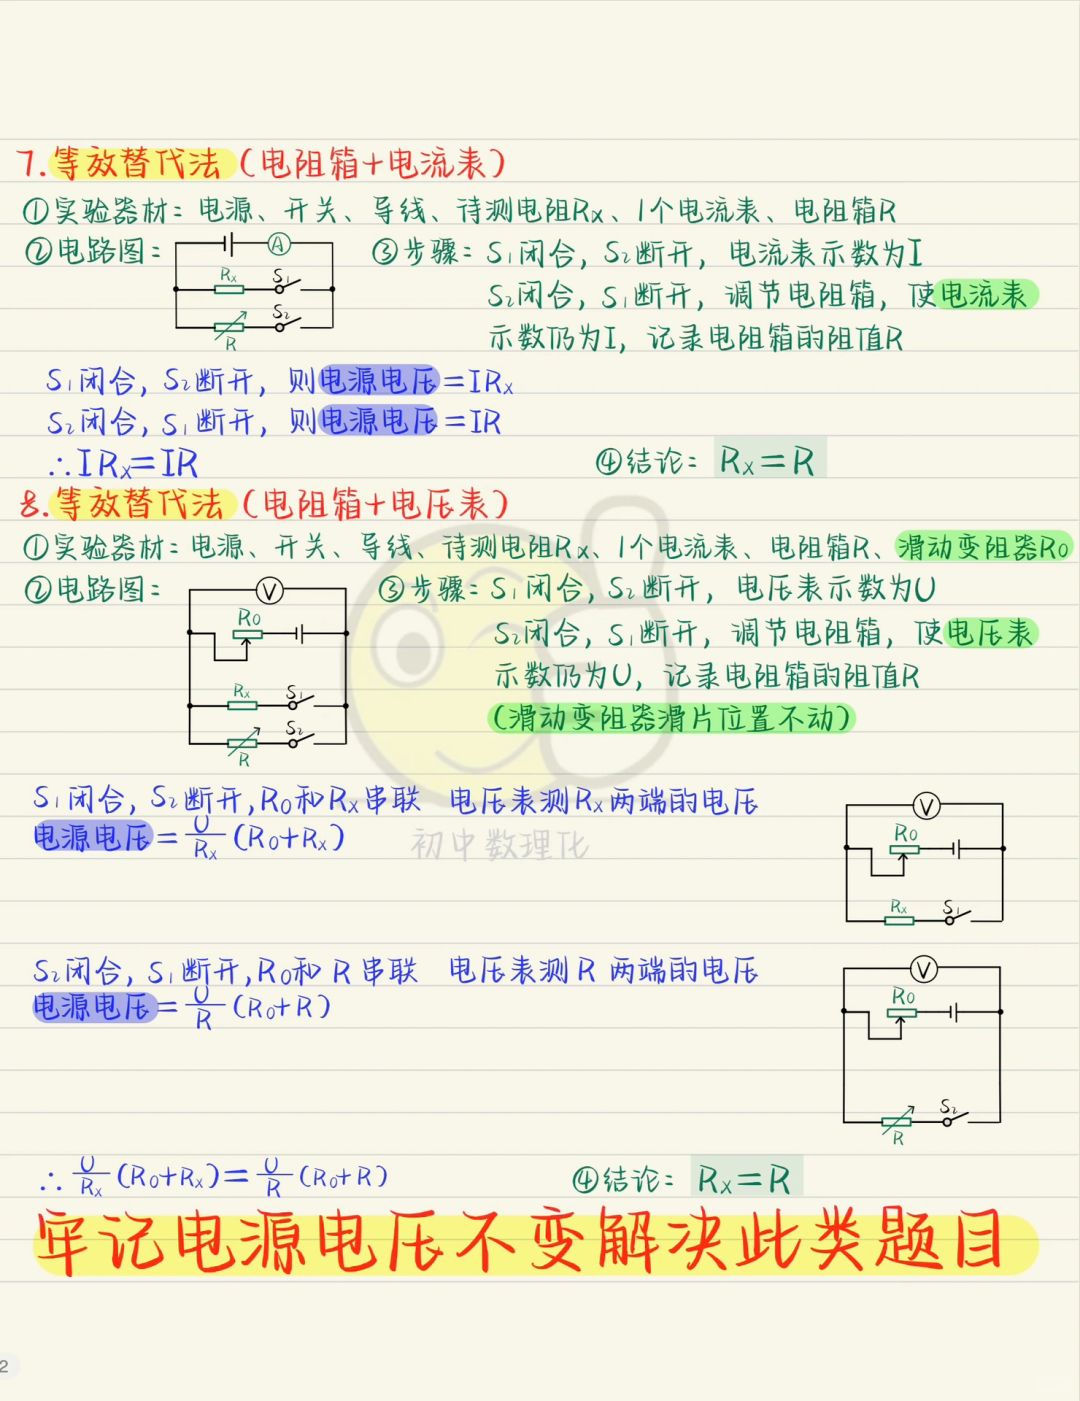 7.等效替代法(电阻箱+电流表)
①实验器材:电源、开关、导线、待测电阻Rx、1个电流表、电阻箱R
②电路图:
A
Rx S1
S2
R
③步骤:S1闭合,S2断开,电流表示数为I
S2闭合,S1断开,调节电阻箱,使电流表
示数仍为I,记录电阻箱的阻值R
S1闭合,S2断开,则电源电压=IRx
S2闭合,S1断开,则电源电压=IR
∴IRx=IR
④结论:Rx=R
8.等效替代法(电阻箱+电压表)
①实验器材:电源、开关、导线、待测电阻Rx、1个电流表、电阻箱R、滑动变阻器R0
②电路图:
V
R0
Rx S1
S2
R
③步骤:S1闭合,S2断开,电压表示数为U
S2闭合,S1断开,调节电阻箱,使电压表
示数仍为U,记录电阻箱的阻值R
(滑动变阻器滑片位置不动)
S1闭合,S2断开,R0和Rx串联 电压表测Rx两端的电压
电源电压=U/Rx(R0+Rx)
初中数理化
V
R0
Rx S1
S2闭合,S1断开,R0和R串联 电压表测R两端的电压
电源电压=U/R(R0+R)
V
R0
S2
R
∴U/Rx(R0+Rx)=U/R(R0+R)
④结论:Rx=R
牢记电源电压不变解决此类题目
2